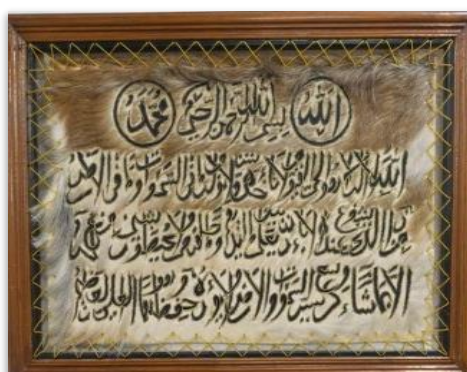 الله بسم الله الرحمن الرحيم محمد
الله لا اله الا هو الحي القيوم لا تأخذه سنة ولا نوم له ما في السموات وما في الارض
من ذا الذي يشفع عنده الا باذنه يعلم ما بين ايديهم وما خلفهم ولا يحيطون بشيء من علمه
الا بما شاء وسع كرسيه السموات والارض ولا يؤده حفظهما وهو العلي العظيم